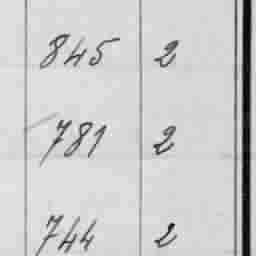 845 2
781 2
744 2